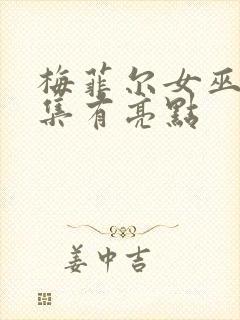 梅菲尔女巫
集有亮點
姜中吉